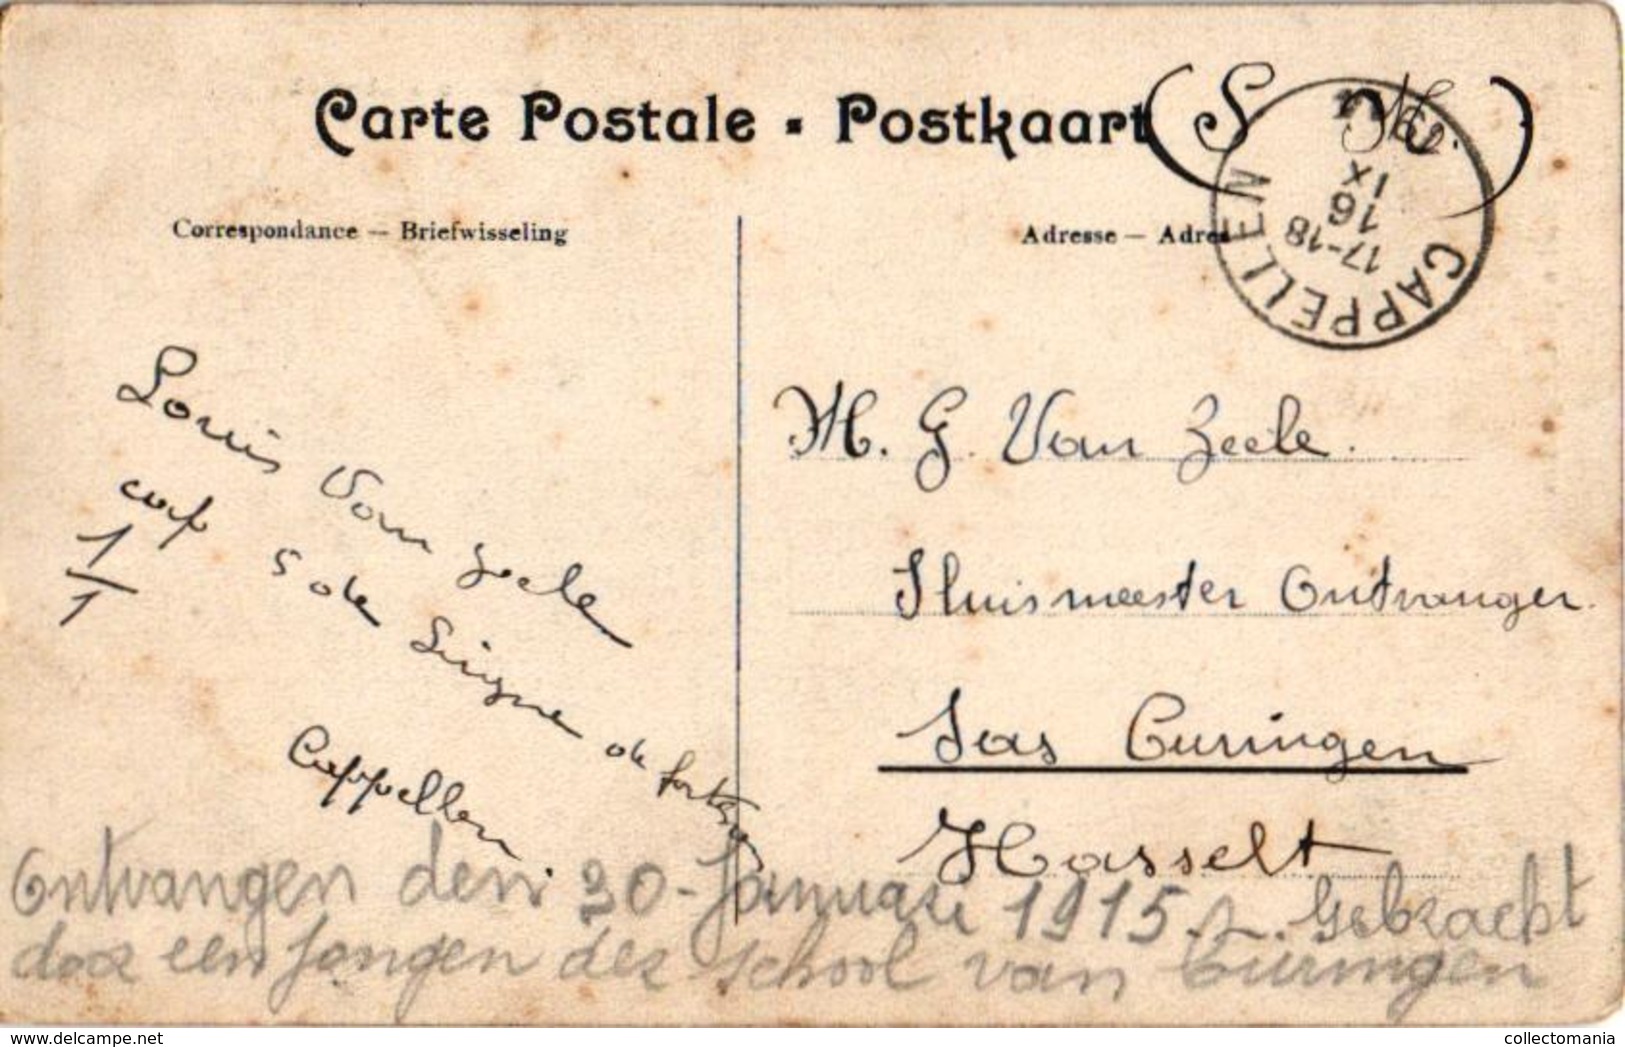 Carte Postale - Postkaart
(S. M.)
CAPPELLEN
17-18
16
IX
Correspondance — Briefwisseling
Adresse — Adres
Louis Van Zeele
corp 5 de Ligne de forter
1/1
Cappellen.
M. G. Van Zeele.
Sluismeester Ontvanger
Sas Curingen
Hasselt
Ontvangen den 30 - Januari 1915. Gebracht
door een Jongen der School van Curingen
www.delcampe.net
collectomania